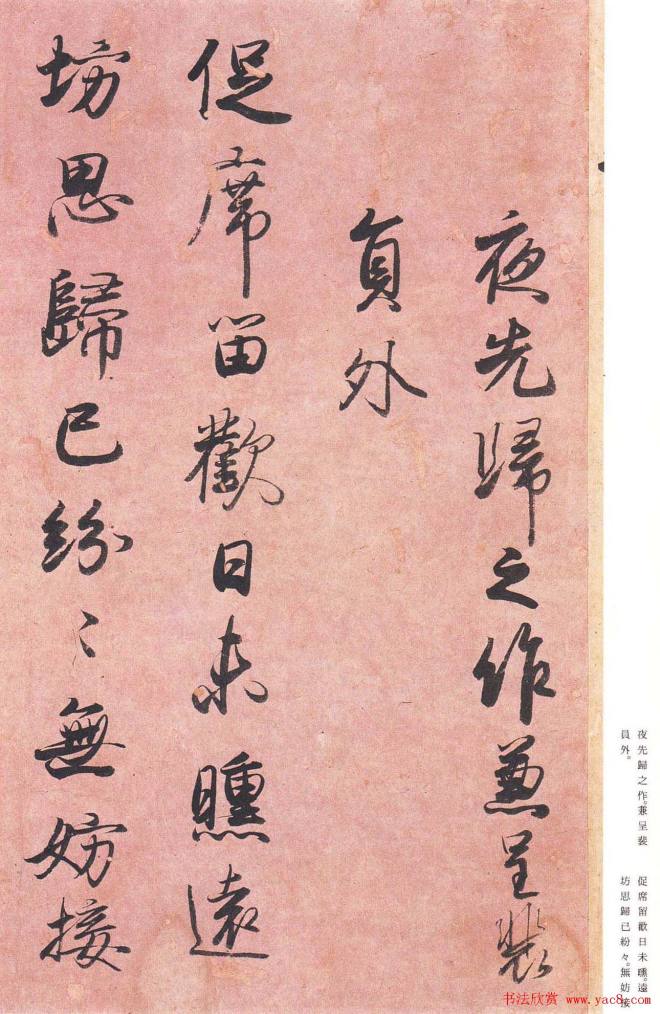 夜先歸之作兼呈裴
員外
促席留歡日未曛遠
坊思歸已紛〻無妨接
夜先歸之作。兼呈裴
員外。
促席留歡日未曛。遠
坊思歸已紛々。無妨接
书法欣赏 www.yac8.com